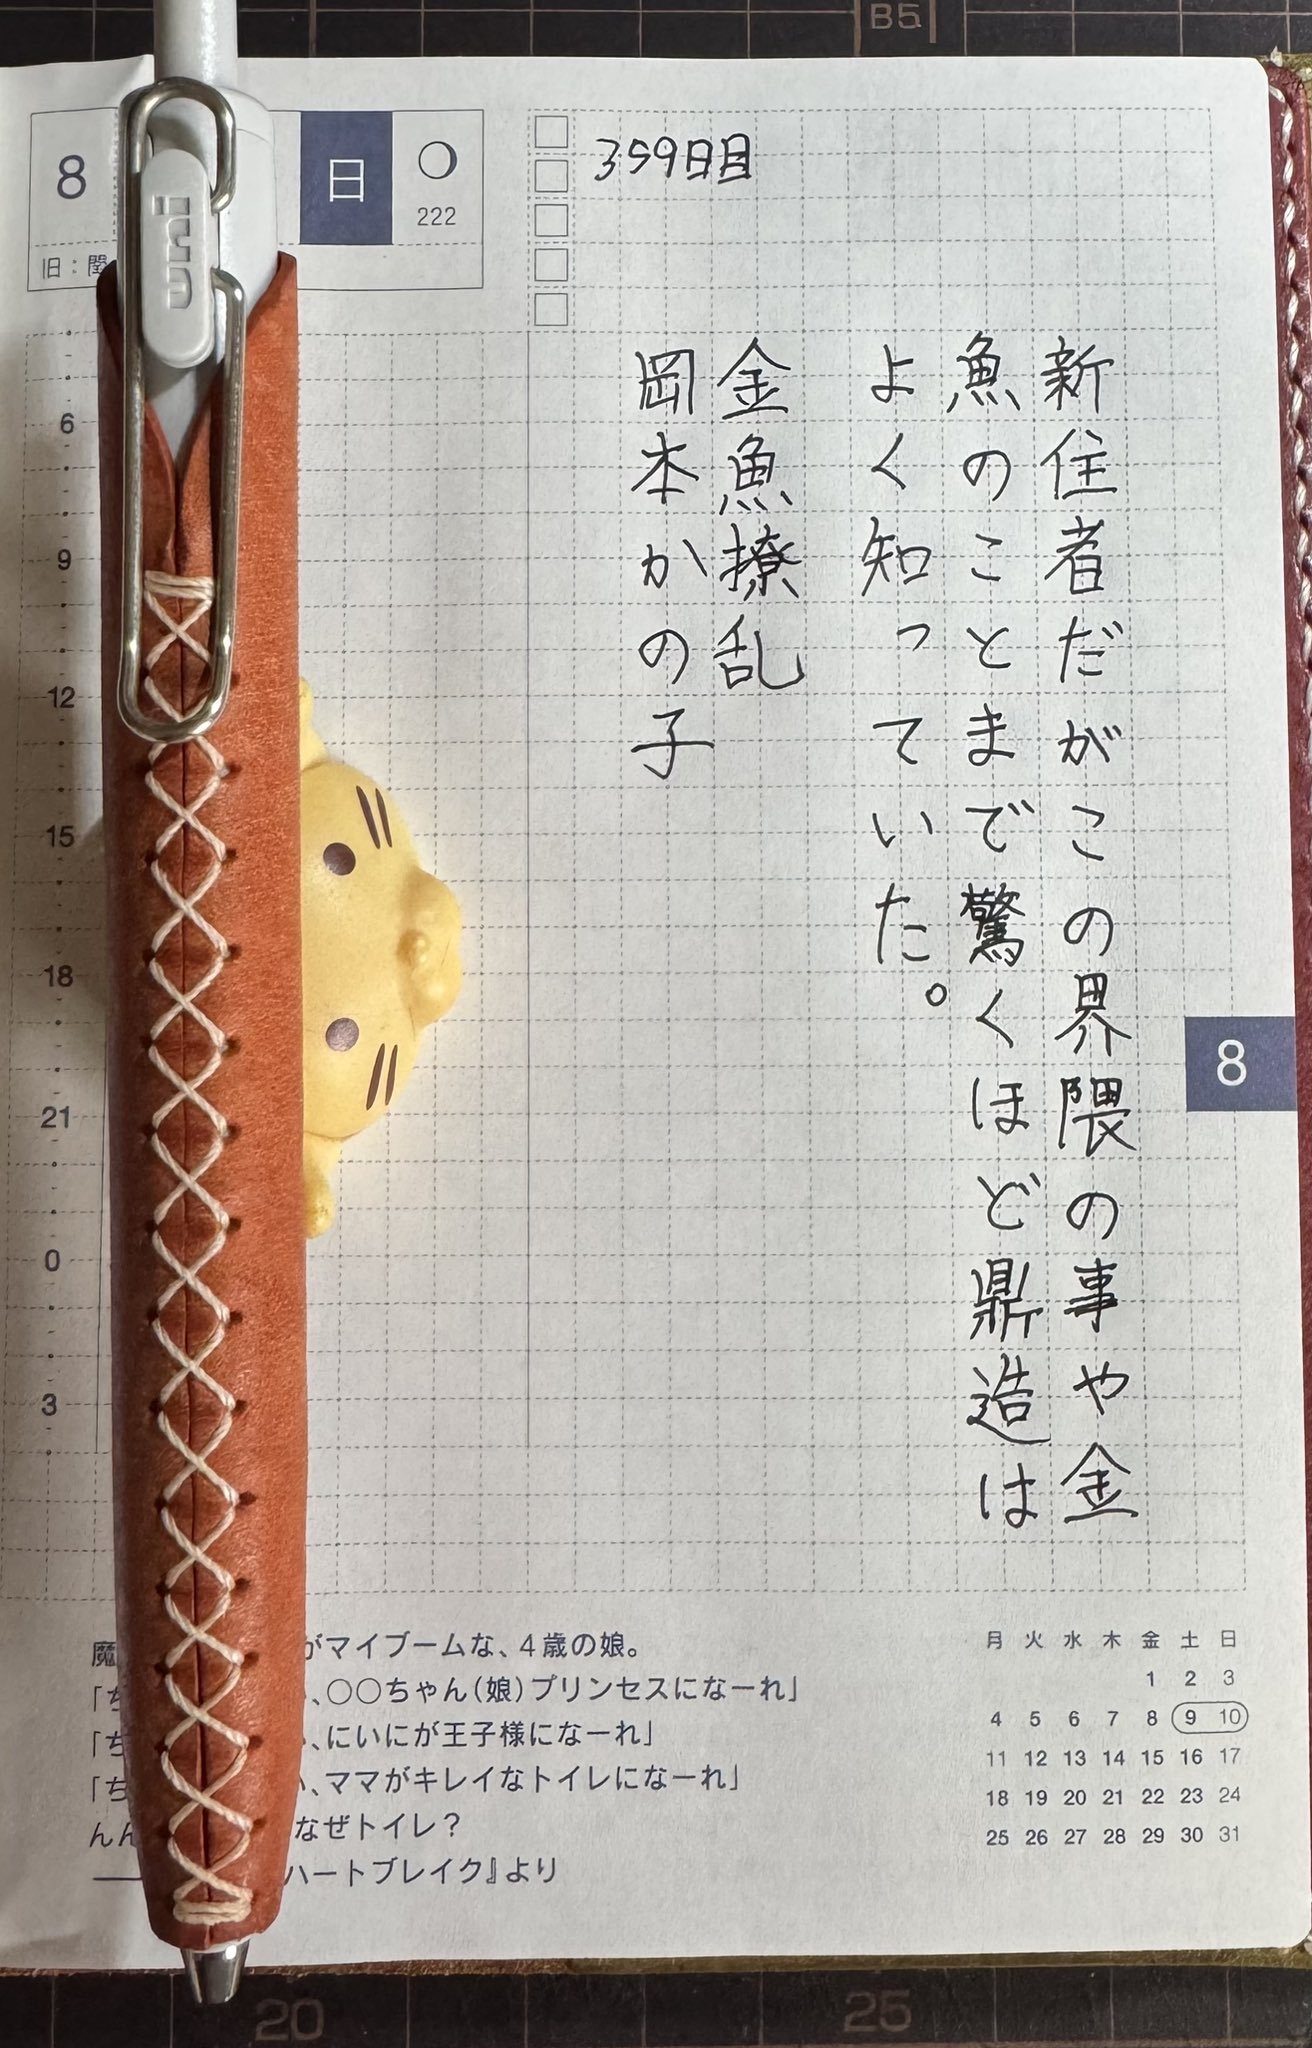 B5
8
日
222
旧：閏
359日目
新住者だがこの界隈の事や金
魚のことまで驚くほど鼎造は
よく知っていた。
金魚撩乱
岡本かの子
uni
6
9
12
15
18
21
0
3
8
魔
がマイブームな、4歳の娘。
「ち
、○○ちゃん（娘）プリンセスになーれ」
「ち
、にいにが王子様になーれ」
「ち
、ママがキレイなトイレになーれ」
んん
なぜトイレ？
ハートブレイク』より
月 火 水 木 金 土 日
1 2 3
4 5 6 7 8 9 10
11 12 13 14 15 16 17
18 19 20 21 22 23 24
25 26 27 28 29 30 31
20
25